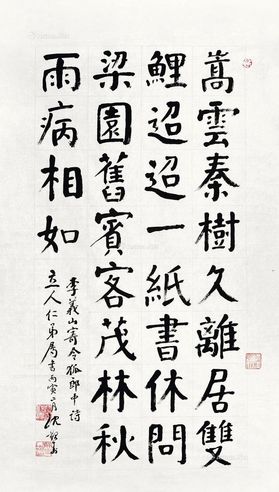 嵩雲秦樹久離居雙
鯉迢迢一紙書休問
梁園舊賓客茂林秋
雨病相如
李義山寄令狐郎中詩
立人仁弟屬書丙寅一月沈